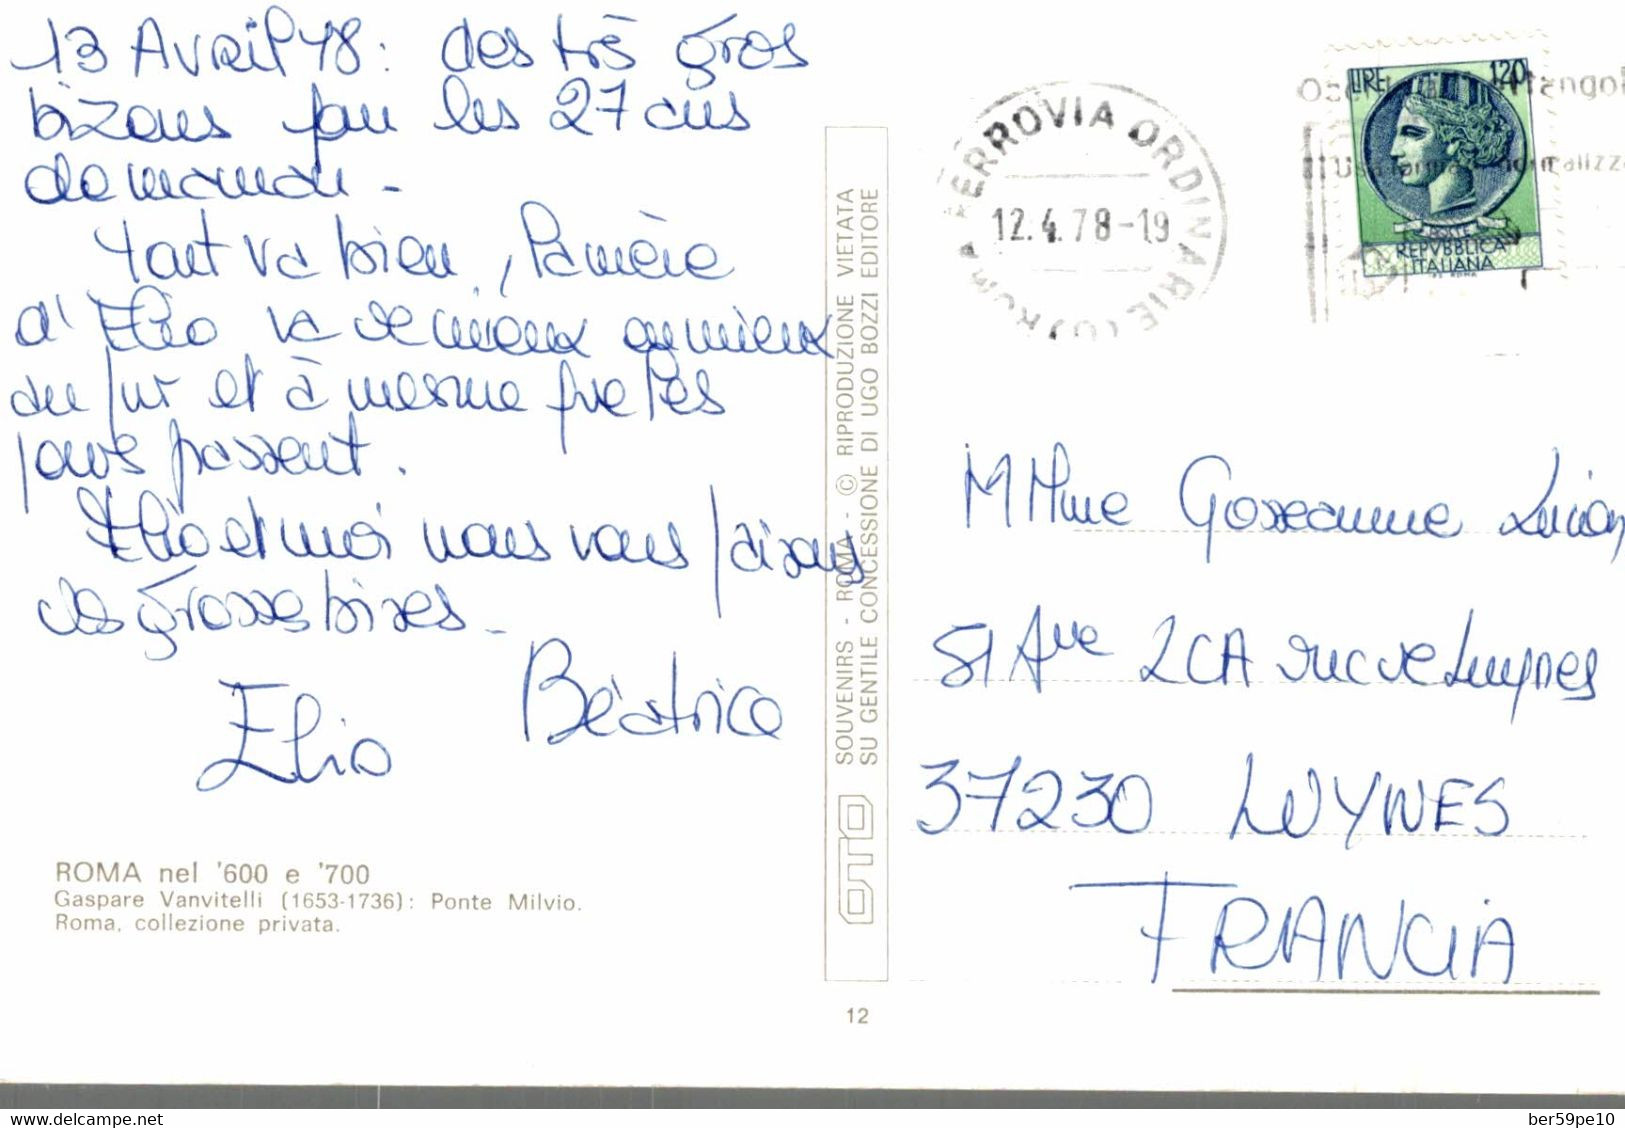 13 Avril 78: des très gros
bizous pour les 27 ans
de maman -
Tout va bien,
d'Elio va de mieux en mieux
et à mesure que les
jours passent.
Elio et moi nous vous faisons
des grosse bises -
Béatrice
Elio
ROMA nel '600 e '700
Gaspare Vanvitelli (1653-1736): Ponte Milvio.
Roma, collezione privata.
SOUVENIRS - ROMA - © RIPRODUZIONE VIETATA
SU GENTILE CONCESSIONE DI UGO BOZZI EDITORE
OTO
12
ROMA FERROVIA ORDINARIE (U)
12.4.78-19
LIRE 120
POSTE
REPVBBLICA
ITALIANA
M Mme
51 Ave rue de Luynes
37230 LUYNES
FRANCIA
delcampe.net
ber59pe10